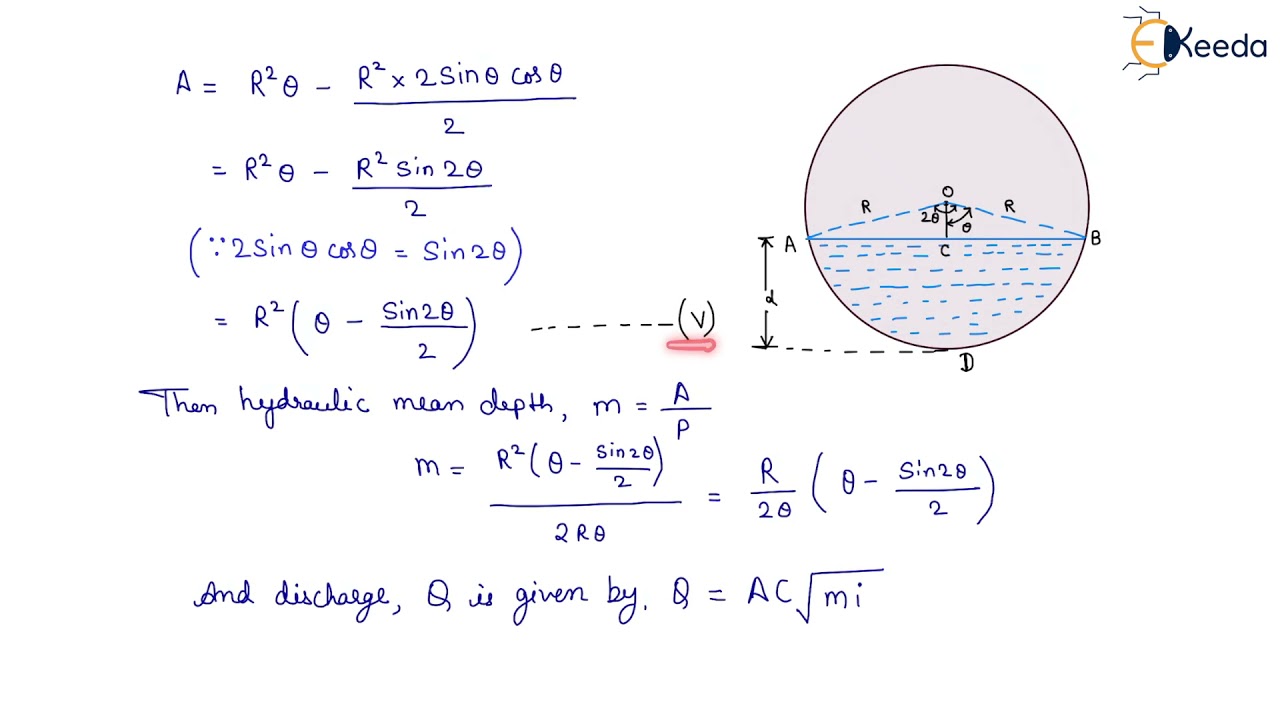 EKeeda
A = R²θ - R² × 2 Sin θ cos θ / 2
= R²θ - R² Sin 2θ / 2
(∵ 2 Sin θ cos θ = Sin 2θ)
= R² (θ - Sin 2θ / 2) --------(V)
O
R R
2θ θ
A C B
d
D
Then hydraulic mean depth, m = A / P
m = R² (θ - Sin 2θ / 2) / 2Rθ = R / 2θ (θ - Sin 2θ / 2)
And discharge, Q is given by. Q = AC √mi